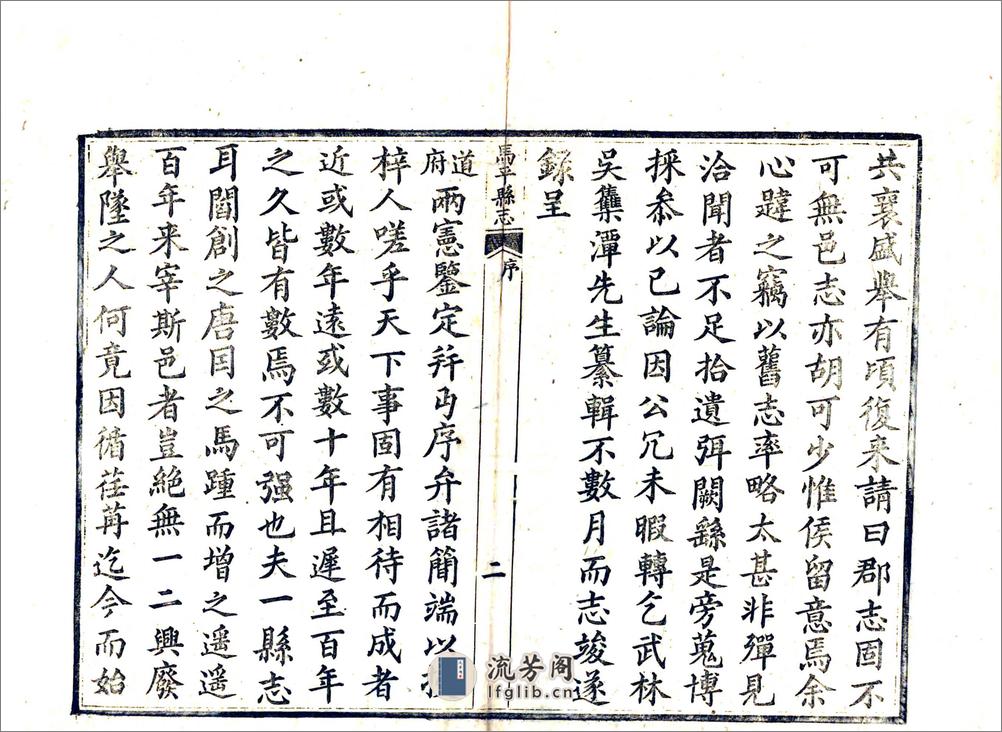 共襄盛舉有頃復来請曰郡志固不
可無邑志亦胡可少惟侯留意焉余
心韙之竊以舊志率略太甚非殫見
洽聞者不足拾遺弭闕繇是旁蒐博
採叅以已論因公冗未暇轉乞武林
吳集潭先生纂輯不數月而志竣遂
錄呈
馬平縣志
序
二
道府兩憲鑒定并丐序弁諸簡端以
梓人嗟乎天下事固有相待而成者
近或數年遠或數十年且遲至百年
之久皆有數焉不可强也夫一縣志
耳閻創之唐因之馬踵而增之遥遥
百年来宰斯邑者豈絶無一二興廢
舉墜之人何竟因循荏苒迄今而始
流芳阁
lfglib.cn